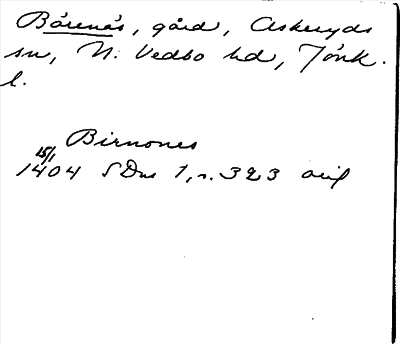 Bårenäs, gård, Askeryds
sn, N. Vedbo hd, Jönk.
l.
Birnones
15/1
1404 SDns 1, n. 323 orig